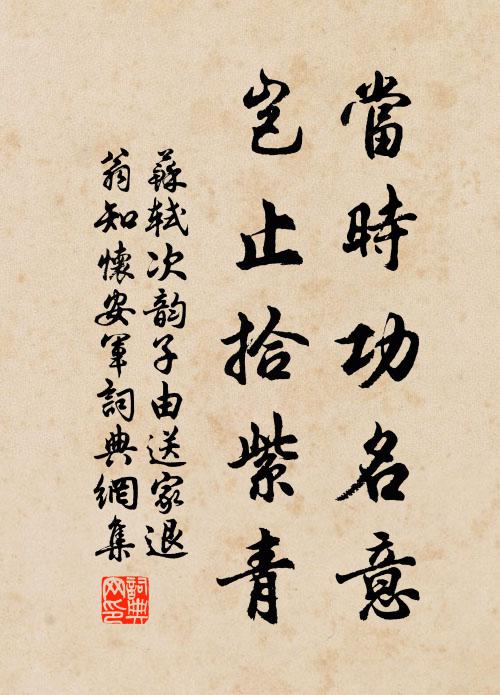 當時功名意
豈止拾紫青
蘇軾次韵子由送家退
翁知懷安軍詞典網集
詞典網印